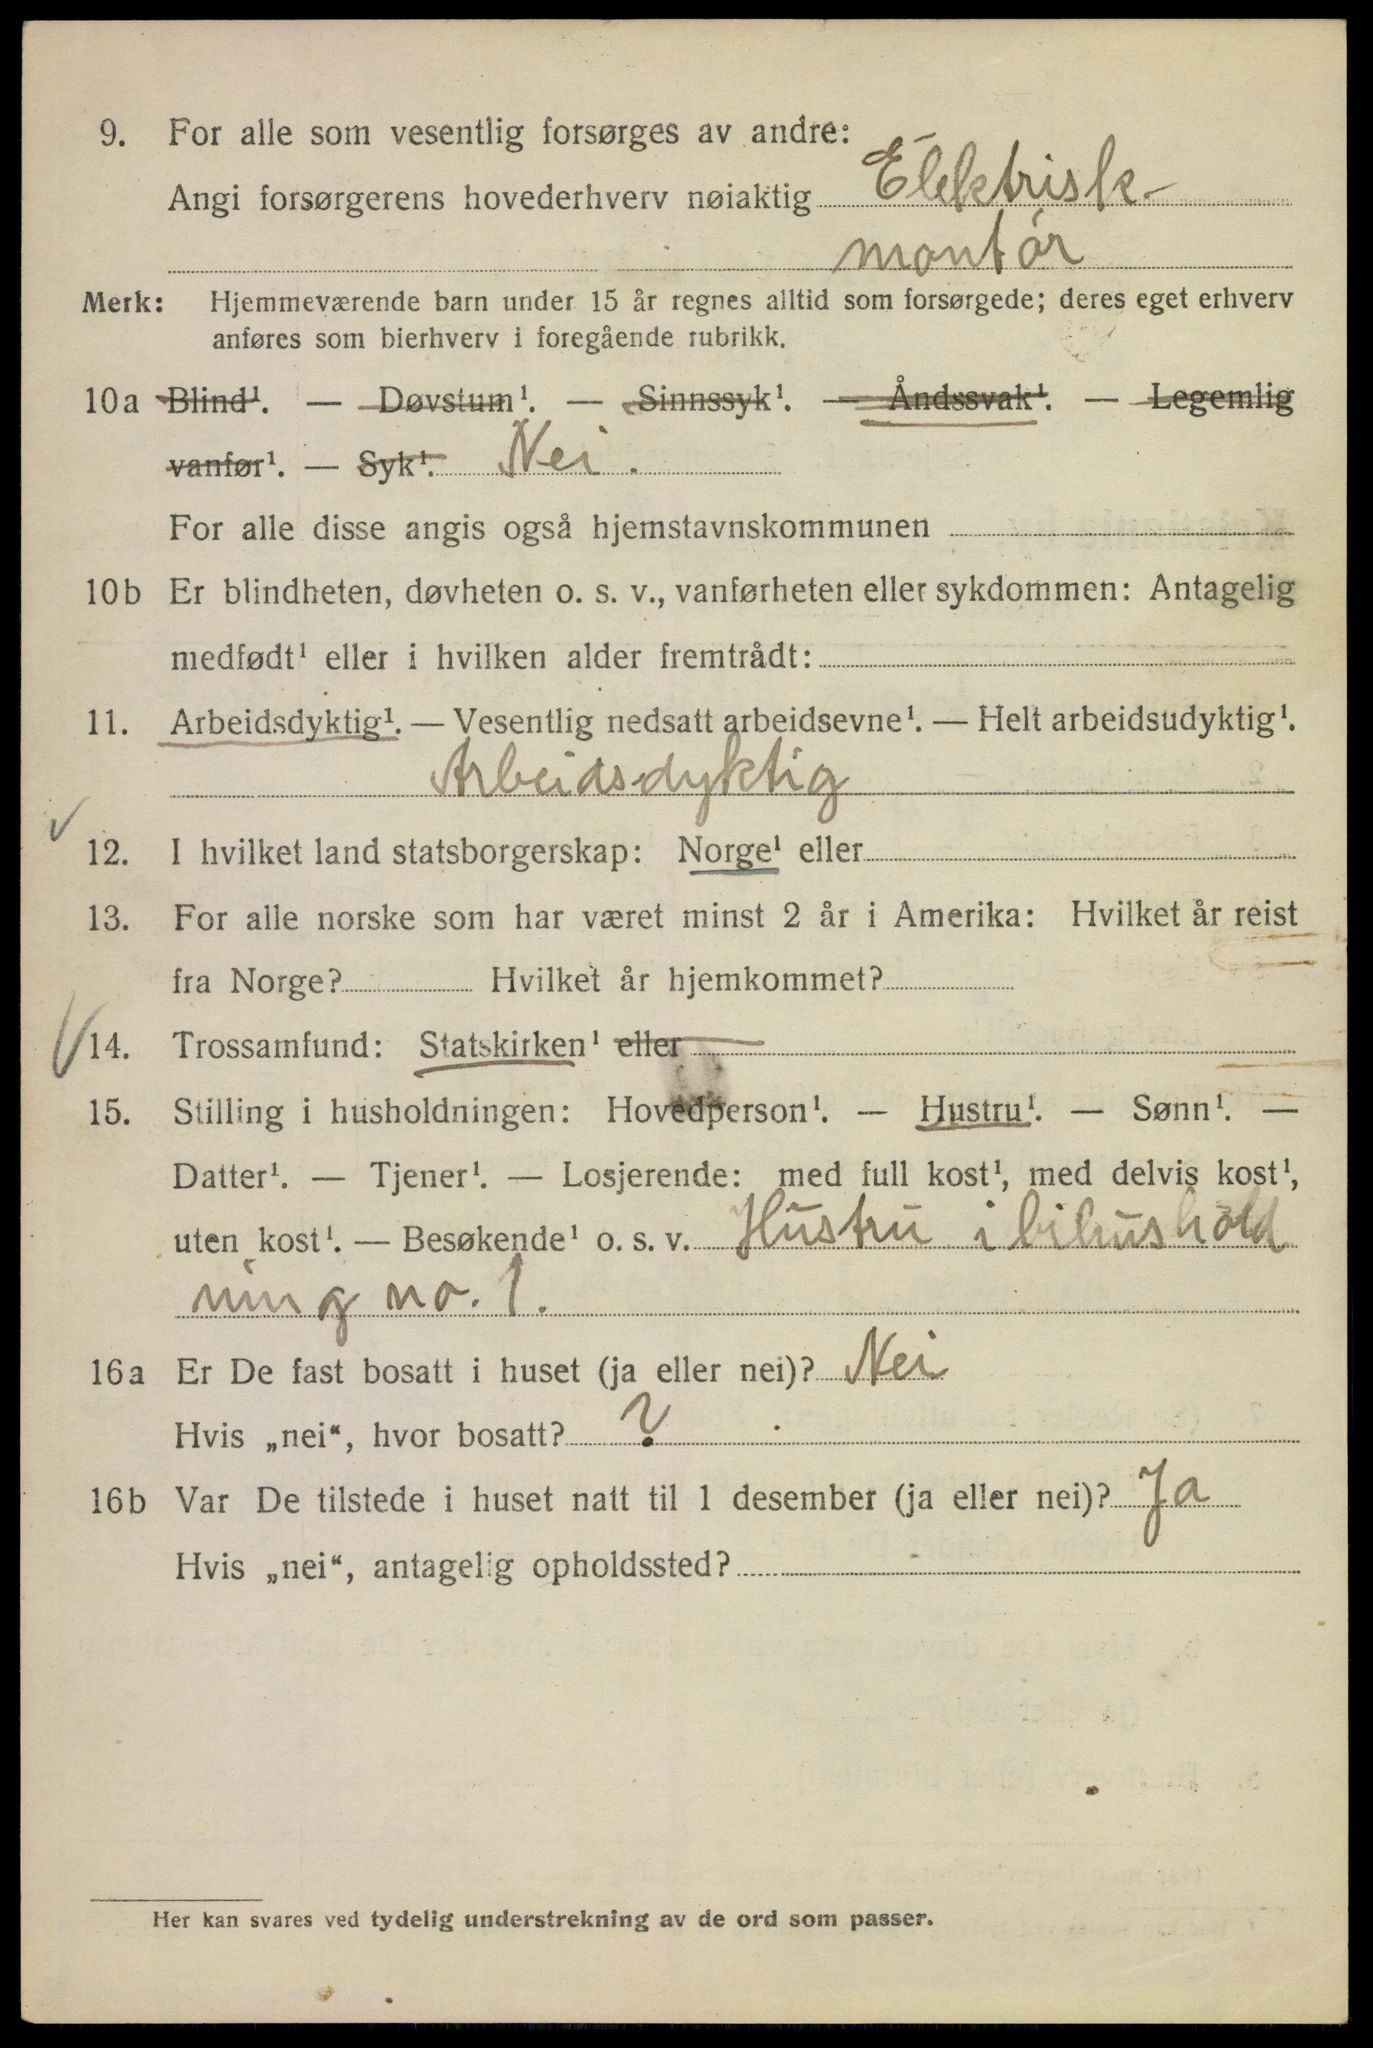 9. For alle som vesentlig forsørges av andre:
Angi forsørgerens hovederhverv nøiaktig Elektrisk-
montør
Merk: Hjemmeværende barn under 15 år regnes alltid som forsørgede; deres eget erhverv
anføres som bierhverv i foregående rubrikk.
10a Blind¹. — Døvstum¹. — Sinnssyk¹. — Åndssvak¹. — Legemlig
vanfør¹. — Syk¹. Nei.
For alle disse angis også hjemstavnskommunen
10b Er blindheten, døvheten o. s. v., vanførheten eller sykdommen: Antagelig
medfødt¹ eller i hvilken alder fremtrådt:
11. Arbeidsdyktig¹. — Vesentlig nedsatt arbeidsevne¹. — Helt arbeidsudyktig¹.
Arbeidsdyktig
12. I hvilket land statsborgerskap: Norge¹ eller
13. For alle norske som har været minst 2 år i Amerika: Hvilket år reist
fra Norge? Hvilket år hjemkommet?
14. Trossamfund: Statskirken¹ eller
15. Stilling i husholdningen: Hovedperson¹. — Hustru¹. — Sønn¹. —
Datter¹. — Tjener¹. — Losjerende: med full kost¹, med delvis kost¹,
uten kost¹. — Besøkende¹ o. s. v. Hustru i bihushold
ning no. 1.
16a Er De fast bosatt i huset (ja eller nei)? Nei
Hvis „nei“, hvor bosatt? ?
16b Var De tilstede i huset natt til 1 desember (ja eller nei)? Ja
Hvis „nei“, antagelig opholdssted?
Her kan svares ved tydelig understrekning av de ord som passer.